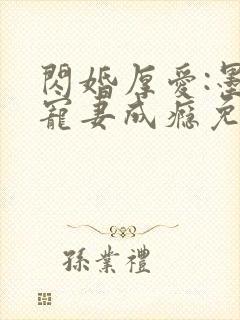 閃婚厚愛:墨
寵妻成癮免
孫業禮